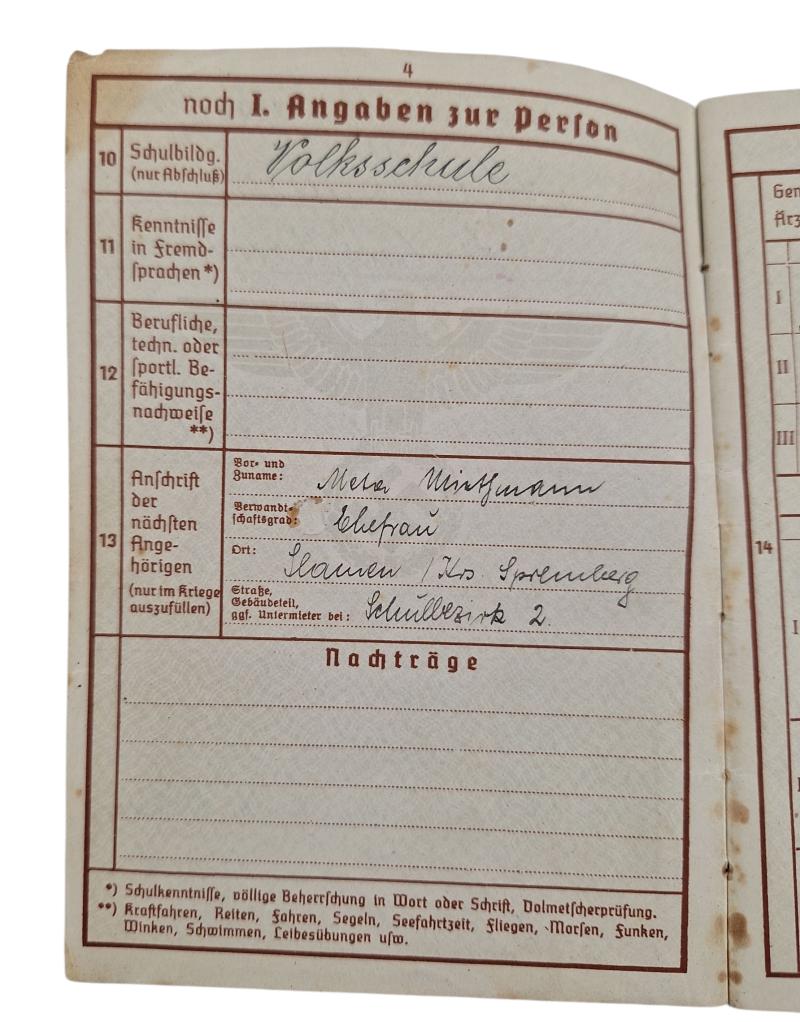 4
noch I. Angaben zur Person
10 Schulbildg. (nur Abschluß)
Volksschule
11 Kenntnisse in Fremd-
sprachen *)
12 Berufliche,
techn. oder
sportl. Be-
fähigungs-
nachweise
**)
13 Anschrift
der
nächsten
Ange-
hörigen
(nur im Kriege
auszufüllen)
Vor- und
Zuname: Meta
Verwandt-
schaftsgrad: Ehefrau
Ort: Slamen / Krs. Spremberg
Straße,
Gebäudeteil,
ggf. Untermieter bei: Schulbezirk 2.
Nachträge
*) Schulkenntnisse, völlige Beherrschung in Wort oder Schrift, Dolmetscherprüfung.
**) Kraftfahren, Reiten, Fahren, Segeln, Seefahrtzeit, Fliegen, Morsen, Funken,
Winken, Schwimmen, Leibesübungen usw.
I
II
III
14